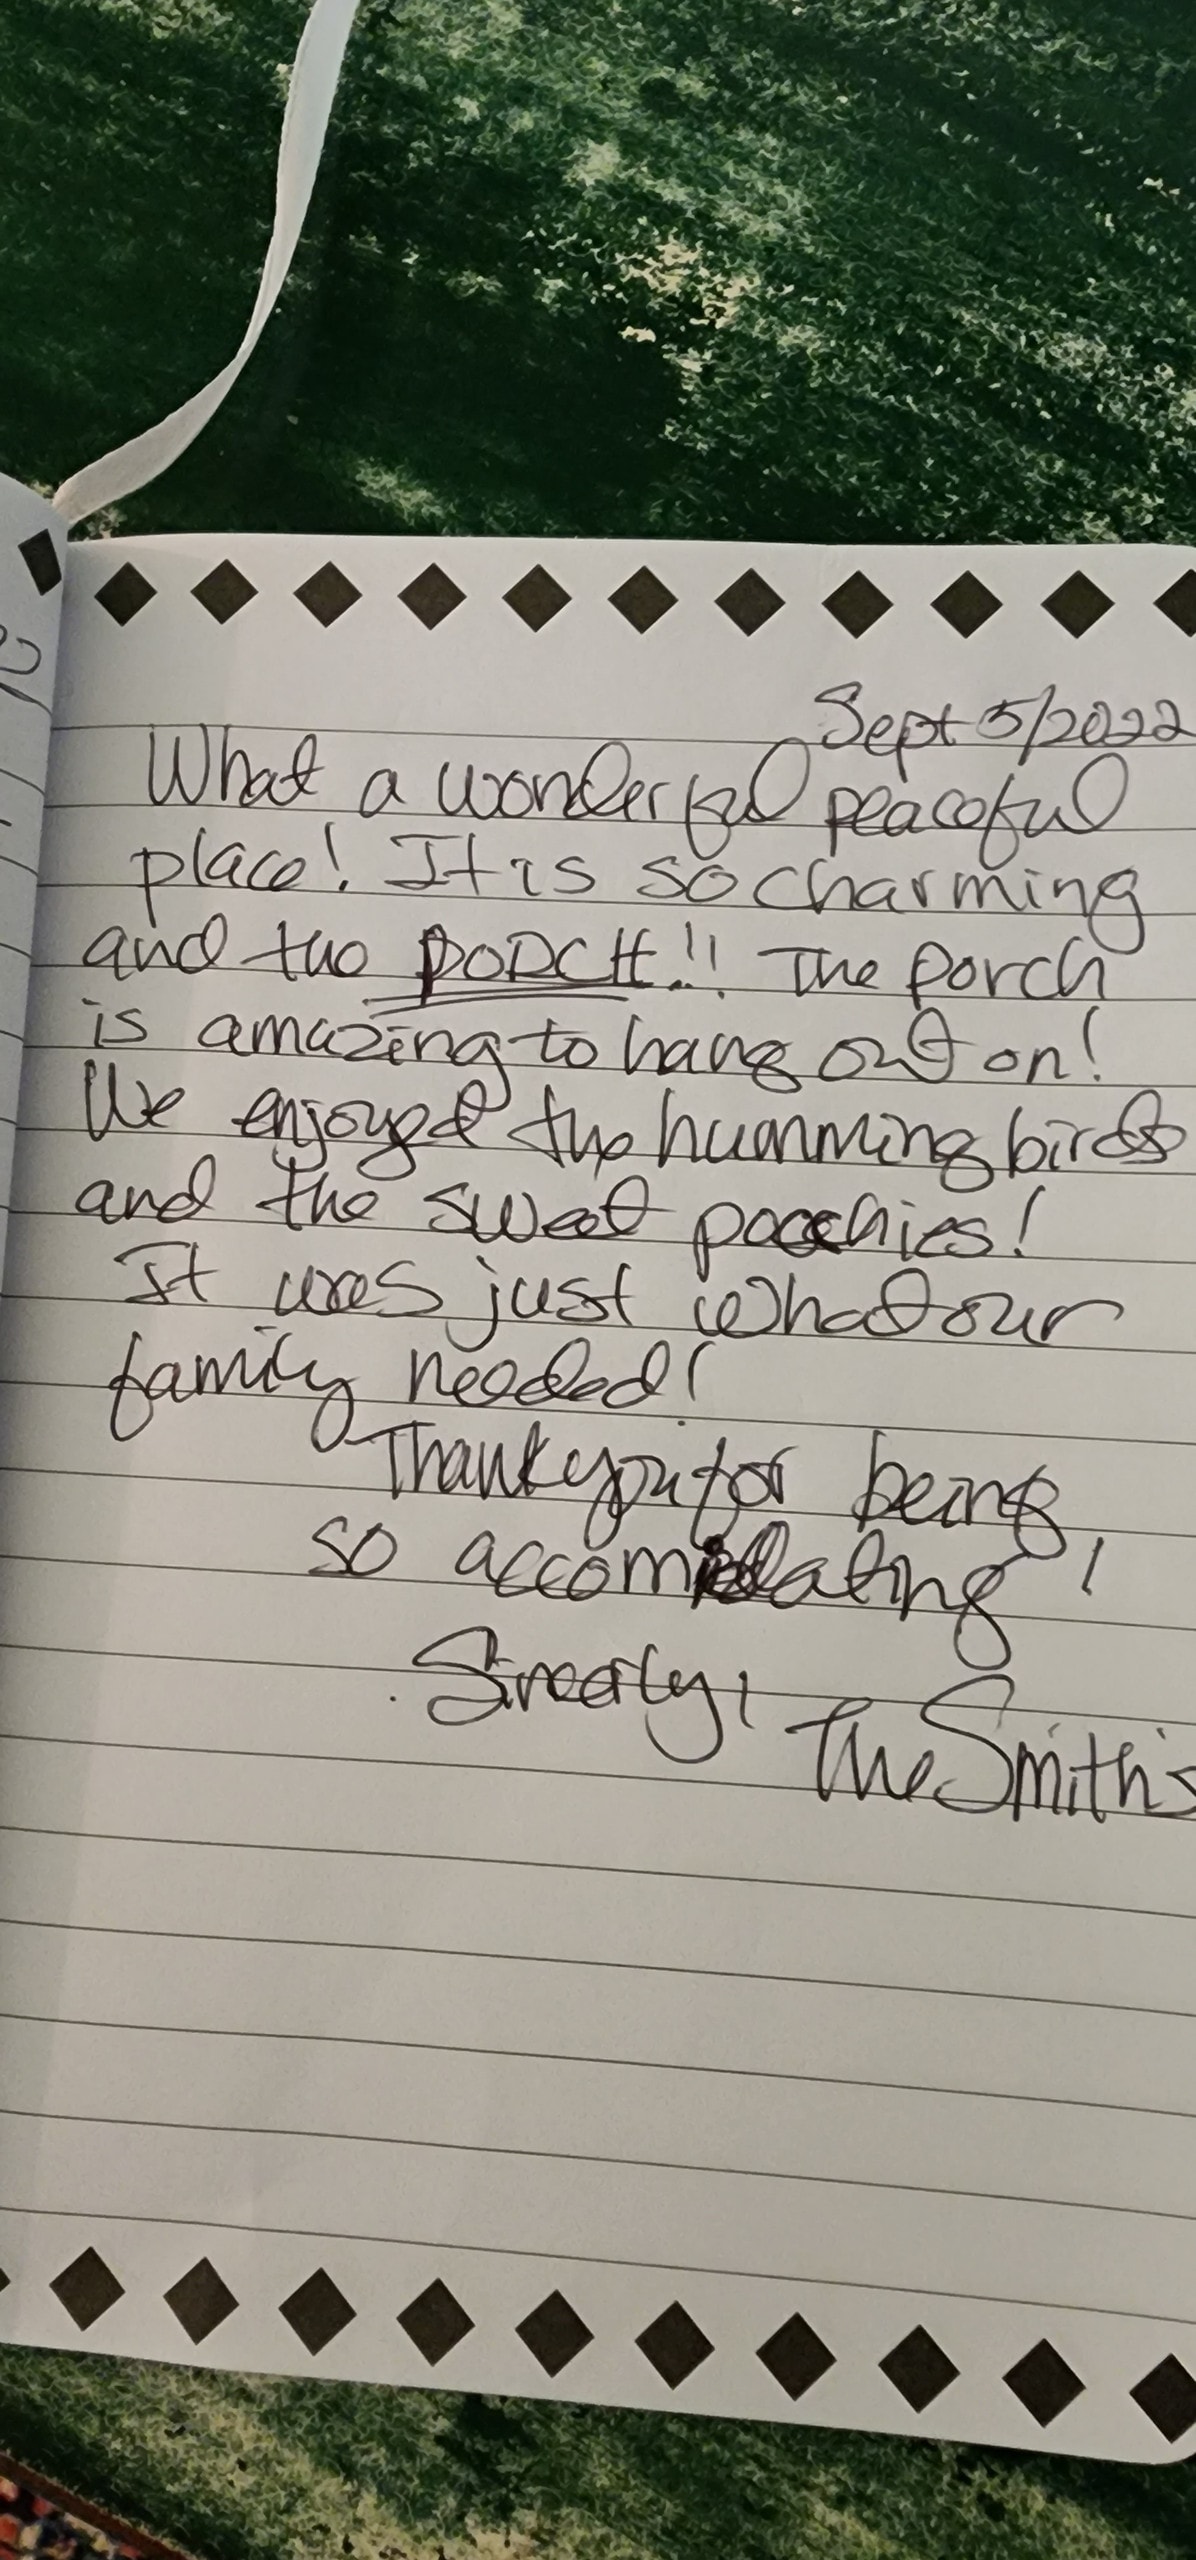 Sept 5/2022
What a wonderful peaceful
place! It is so charming
and the PORCH!! The porch
is amazing to hang out on!
We enjoyed the humming birds
and the sweet poochies!
It was just what our
family needed!
Thank you for being
so accomodating!
Sincerly,
The Smith's